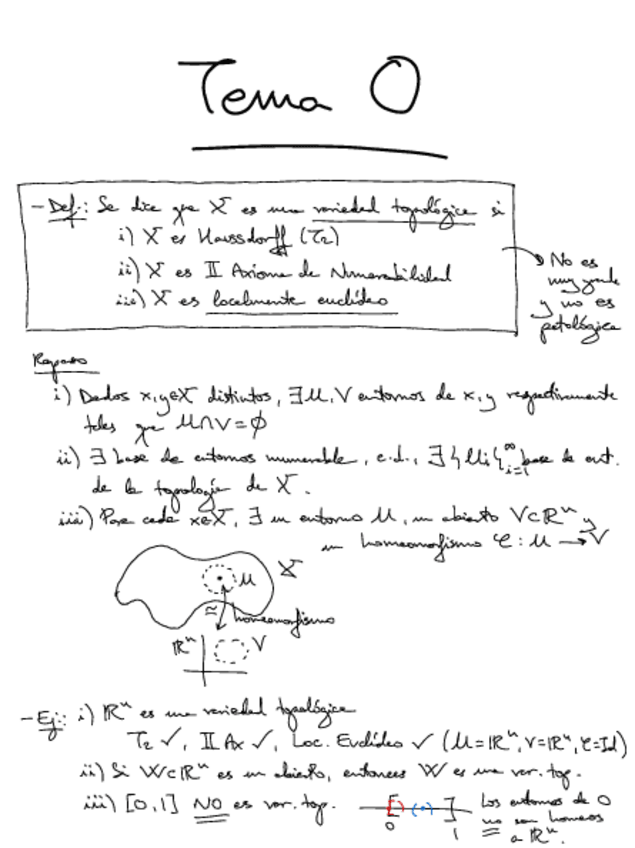 Tema 0
- Def.: Se dice que X es una variedad topológica si
i) X es Haussdorff (T2)
ii) X es II Axioma de Numerabilidad
iii) X es localmente euclídeo
No es
muy grande
y no es
patológica
Repaso
i) Dados x,y∈X distintos, ∃ U,V entornos de x,y respectivamente
tales que U∩V=∅
ii) ∃ base de entornos numerable, e.d., ∃ {Ui}_{i=1}^∞ base de ent.
de la topología de X.
iii) Para cada x∈X, ∃ un entorno U, un abierto V⊂ℝⁿ y
un homeomorfismo φ: U → V
U X
≅ homeomorfismo
ℝⁿ V
- Ej.: i) ℝⁿ es una variedad topológica
T2 ✓, II Ax ✓, Loc. Euclídeo ✓ (U=ℝⁿ, V=ℝⁿ, φ=Id)
ii) Si W⊂ℝⁿ es un abierto, entonces W es una var. top.
iii) [0,1] NO es var. top.
0 1
Los entornos de 0
no son homeos
a ℝⁿ.